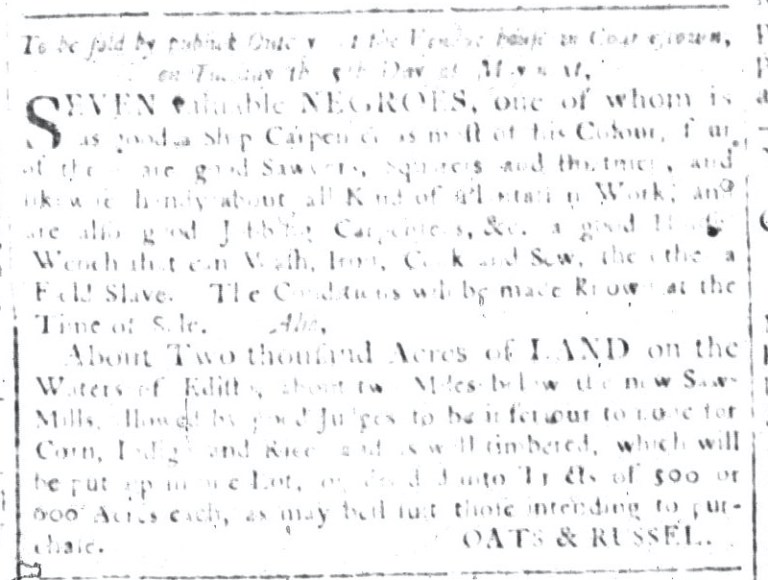 To be sold by publick Outcry at the Vendue house in Town,
on Tuesday the 5th Day of next,
SEVEN valuable NEGROES, one of whom is
as good a Ship Carpenter as most of his Colour, four
of them are good Sawyers, Squarers and Boatmen, and
likewise handy about all Kind of Plantation Work, and
are also good Jobbing Carpenters, &c. a good House
Wench that can Wash, Iron, Cook and Sew, the other a
Field Slave. The Conditions will be made known at the
Time of Sale. Also,
About Two thousand Acres of LAND on the
Waters of Edisto, about two Miles below the new Saw-
Mills, allowed by good Judges to be inferiour to none for
Corn, Indigo and Rice and is well timbered, which will
be put up in one Lot, or divided into Tracts of 500 or
600 Acres each, as may best suit those intending to pur-
chase. OATS & RUSSEL.